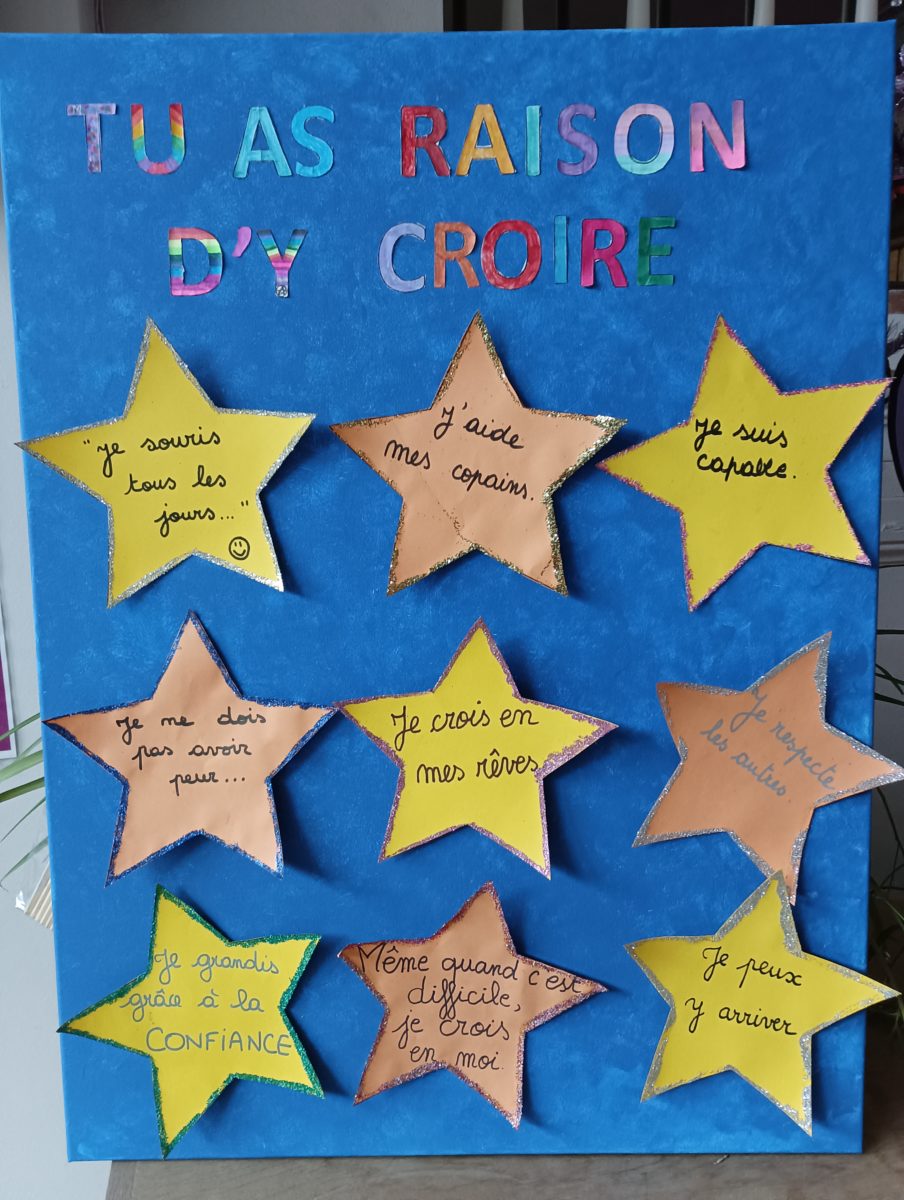 TU AS RAISON
D'Y CROIRE
"je souris
tous les
jours..."
J'aide
mes copains.
Je suis
capable.
Je ne dois
pas avoir
peur...
Je crois en
mes rêves
Je respecte
les autres.
Je grandis
grâce à la
CONFIANCE
Même quand c'est
difficile,
je crois
en moi.
Je peux
y arriver